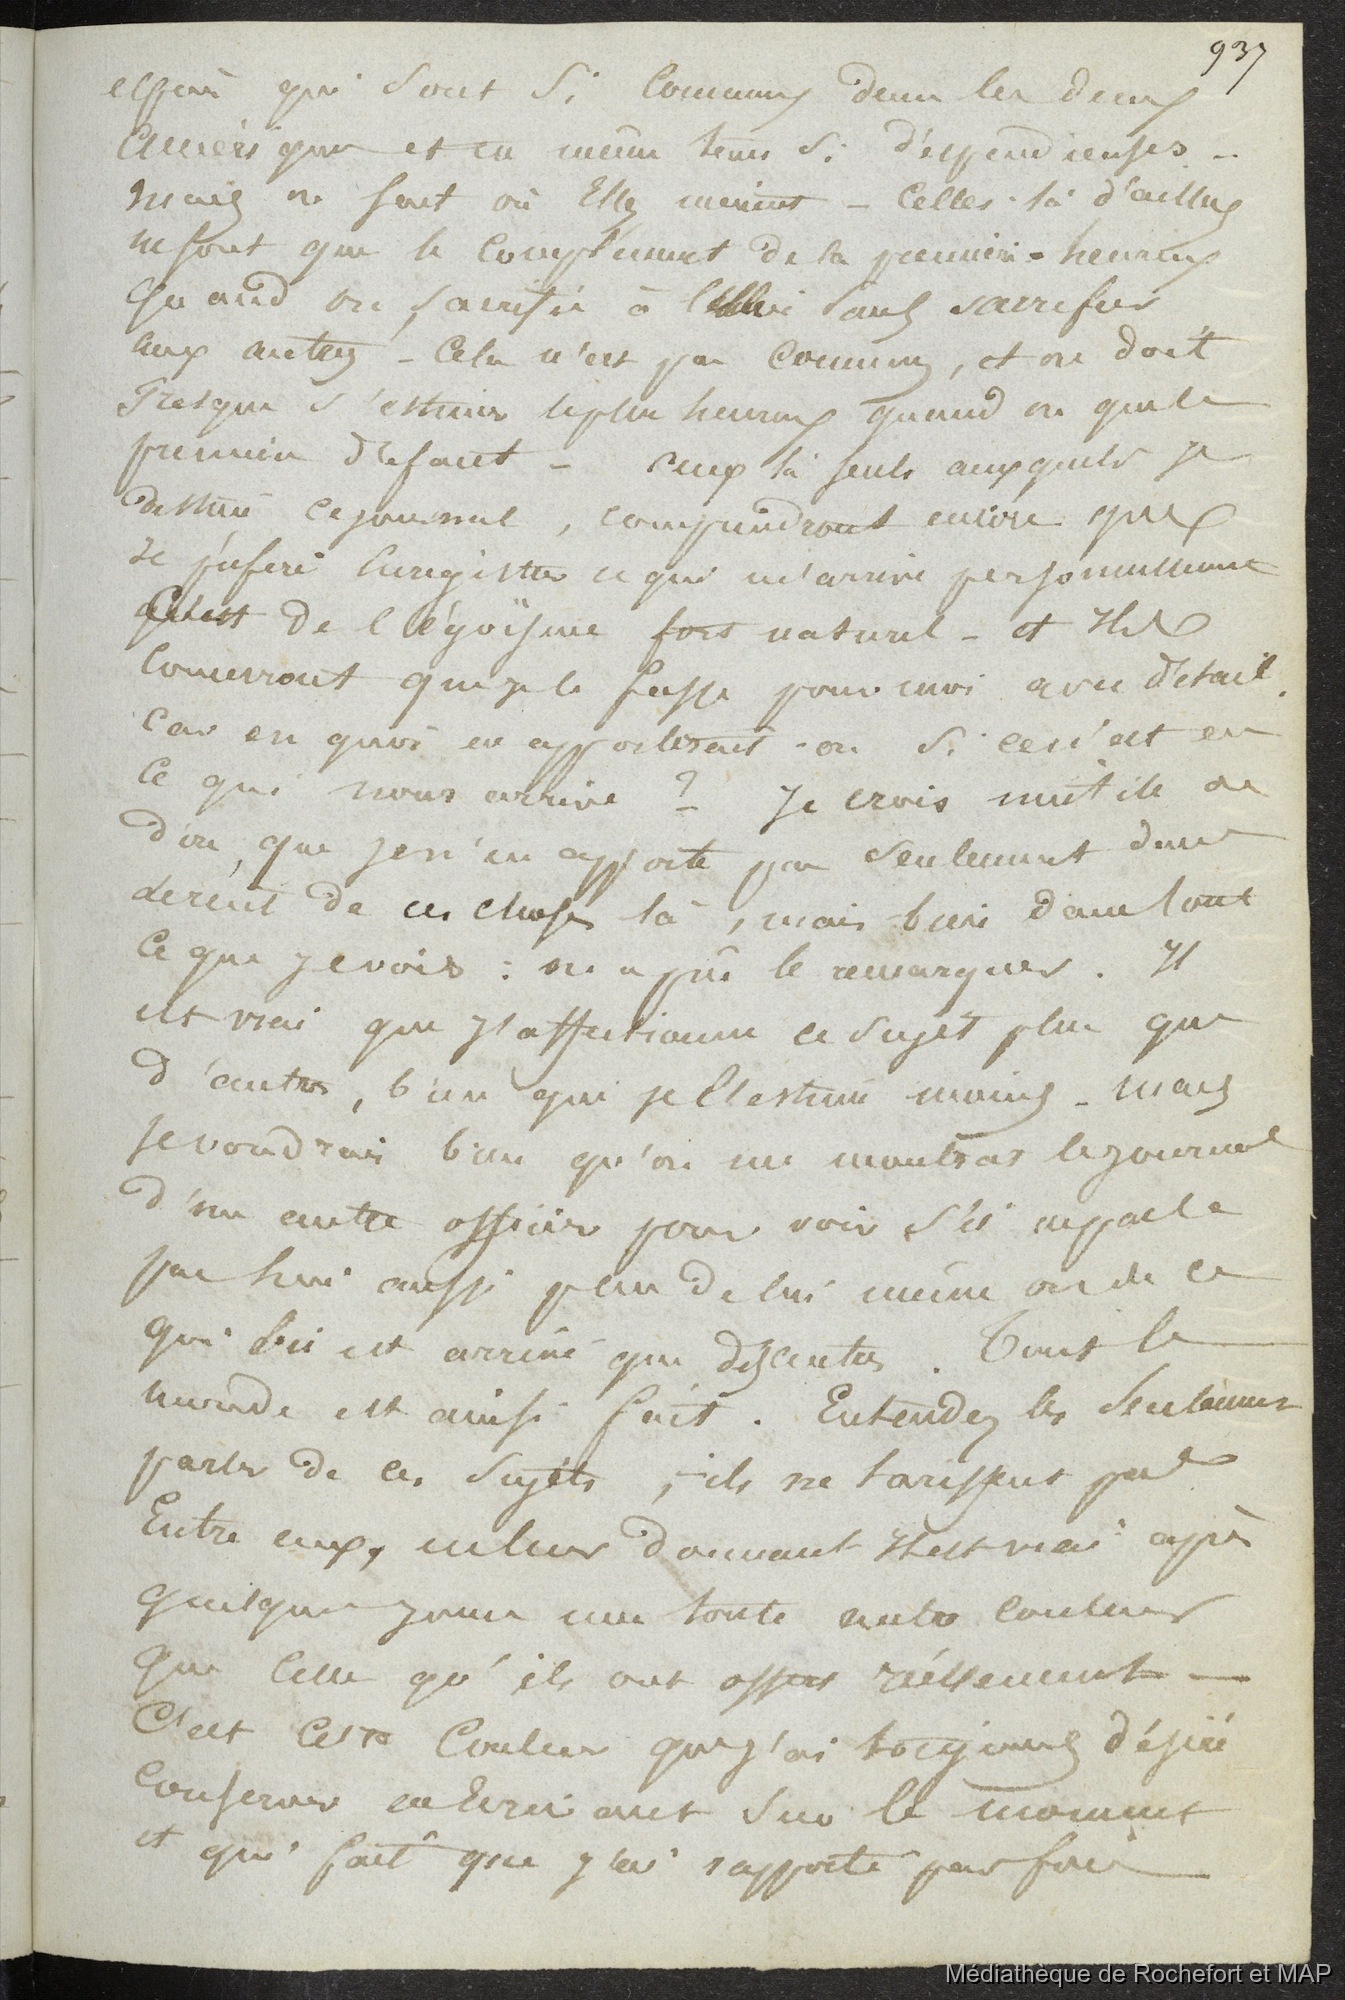 937
espèce qui sont si communes dans les deux
Amériques et en même tems si dispendieuses -
mais on sent où elles mènent - celles-là d'ailleurs
ne sont que le complément de la première - heureux
quand on sacrifie à celle ci sans sacrifier
aux autres - cela n'est pas commun, et on doit
presque s'estimer le plus heureux quand on que le
premier défaut - ceux là seuls auxquels je
destine ce journal, comprendront encore que
si j'ose enregistrer ce qui m'arrive personnellement
c'est de l'égoïsme fort naturel - et ils
concevront que je le fasse pour moi avec détail.
car en quoi en apporterait-on si ce n'est en
ce qui nous arrive ? - Je crois inutile de
dire, que je n'en apporte pas seulement dans
le récit de ces choses là, mais bien dans tout
ce que je vois : on a pu le remarquer. Il
est vrai que j'affectionne ce sujet plus que
d'autres, bien que je l'estime moins - mais
je voudrais bien qu'on me montrât le journal
d'un autre officier pour voir s'il n'y parle
pas lui aussi plus de lui même ou de ce
qui lui est arrivé que des autres. Tout le
monde est ainsi fait. Entendez les seulement
parler de ces sujets, ils ne tarissent pas
Entre eux, en leur donnant il est vrai après
quelques jours une toute autre couleur
que celle qu'ils ont offert réellement -
C'est cette couleur que j'ai toujours désiré
conserver en écrivant sur le moment
et qui fait que j'ai rapporté parfois
Médiathèque de Rochefort et MAP